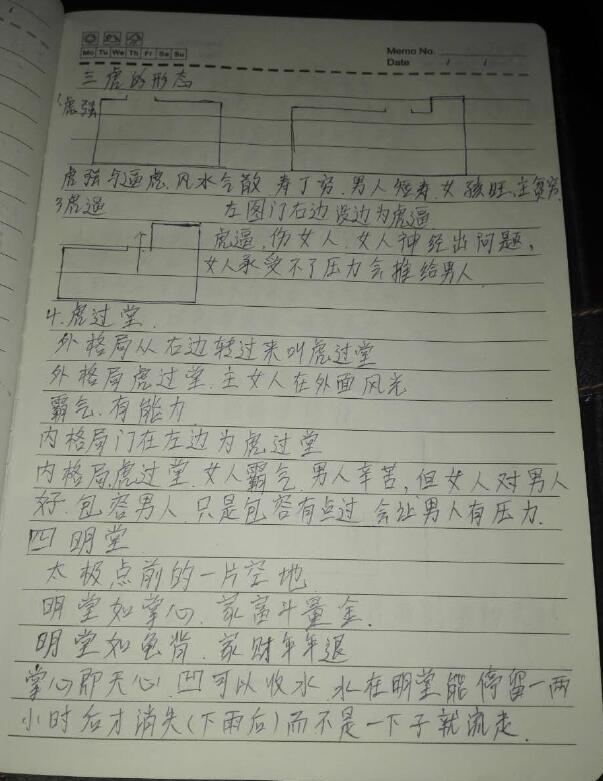 Mo Tu We Th Fr Sa Su
Memo No.
Date / /
三虎的形态
1虎强
虎强与逼虎.风水气散 寿丁穷.男人短寿.女孩旺.主贫穷
3虎逼 左图门右边没边为虎逼
虎逼.伤女人.女人神经出问题,
女人承受不了压力会推给男人
4.虎过堂.
外格局从右边转过来叫虎过堂
外格局虎过堂.主女人在外面风光
霸气.有能力
内格局门在左边为虎过堂
内格局.虎过堂.女人霸气.男人辛苦,但女人对男人
好.包容男人.只是包容有点过 会让男人有压力.
四 明堂
太极点前的一片空地
明堂如掌心.家富斗量金.
明堂如龟背.家财年年退
掌心即天心.凹可以收水 水在明堂能停留一两
小时后才消失(下雨后)而不是一下子就流走.